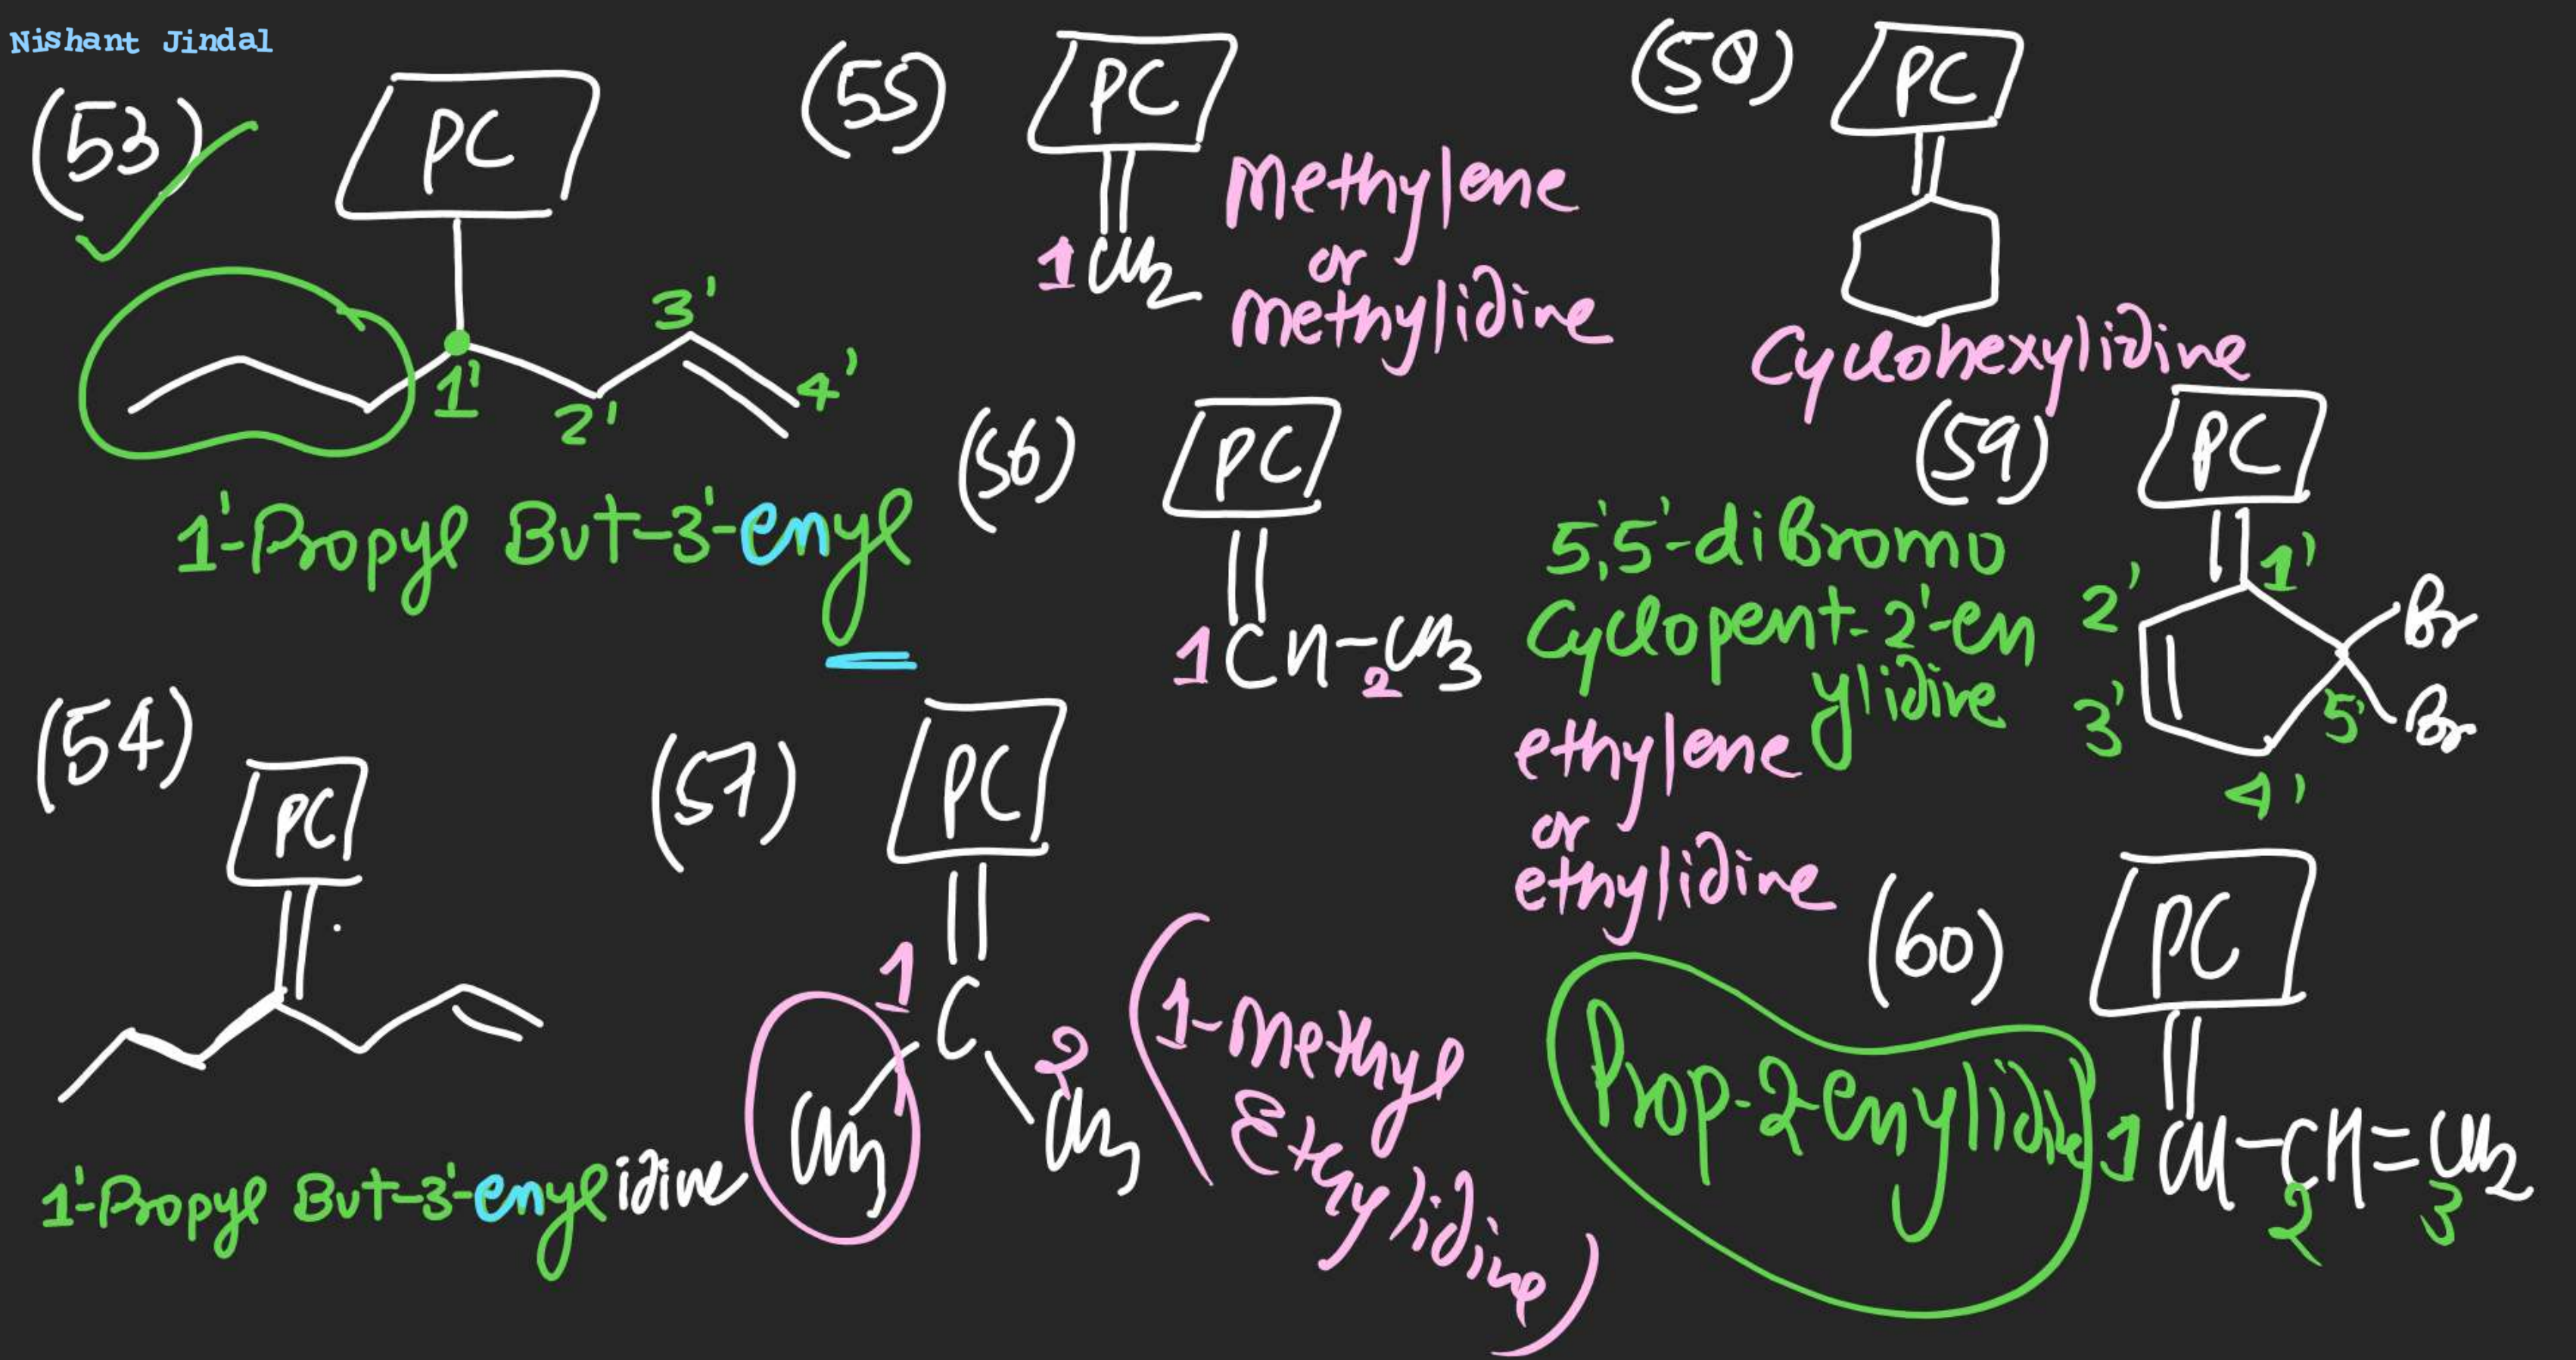 Nishant Jindal
(53)
PC
1'
2'
3'
4'
1'-Propyl But-3'-enyl
(54)
PC
1'-Propyl But-3'-enylidine
(55)
PC
1 CH2
Methylene
or
methylidine
(56)
PC
1 CH-CH3
2
ethylene
or
ethylidine
(57)
PC
1
C
2
CH3
CH3
(1-Methyl
Ethylidine)
(58)
PC
Cyclohexylidine
(59)
PC
1'
2'
3'
4'
5'
Br
Br
5',5'-diBromo
Cyclopent-2'-en
ylidine
(60)
PC
1 CH-CH=CH2
2
3
Prop-2-enylidine